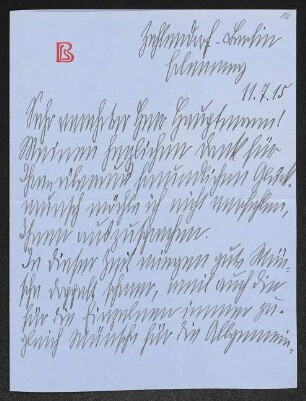 Zehlendorf-Berlin
11.7.15
Sehr verehrter Herr Hauptmann!
Meinen herzlichen Dank für
Ihren überaus freundlichen Glück-
wunsch möchte ich nicht versäumen,
Ihnen auszusprechen.
In dieser Zeit wiegen gute Wün-
sche doppelt schwer, weil auch die
für die Einzelnen immer zu-
gleich Wünsche für die Allgemein-